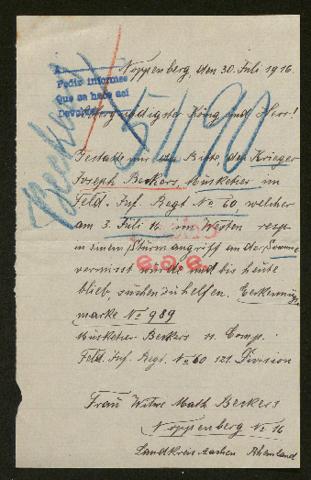 Noppenberg, den 30. Juli 1916.
Pedir informes
que se hace asi
Beckers
51190
König und Herr!
Gestatte mir die Bitte, den Krieger
Joseph Beckers, Musketier im
Feld. Inf. Regt No 60 welcher
am 3. Juli 16 im Westen resp
in einem Sturmangriff an der Somme
vermisst wurde und bis heute
blieb, suchen zu helfen. Erkennungs
marke No 989
Musketier Beckers 11. Comp.
Feld. Inf. Regt. No 60 121. Division
Frau Witwe Math Beckers
Noppenberg No 16
Landkreis Aachen Rheinland